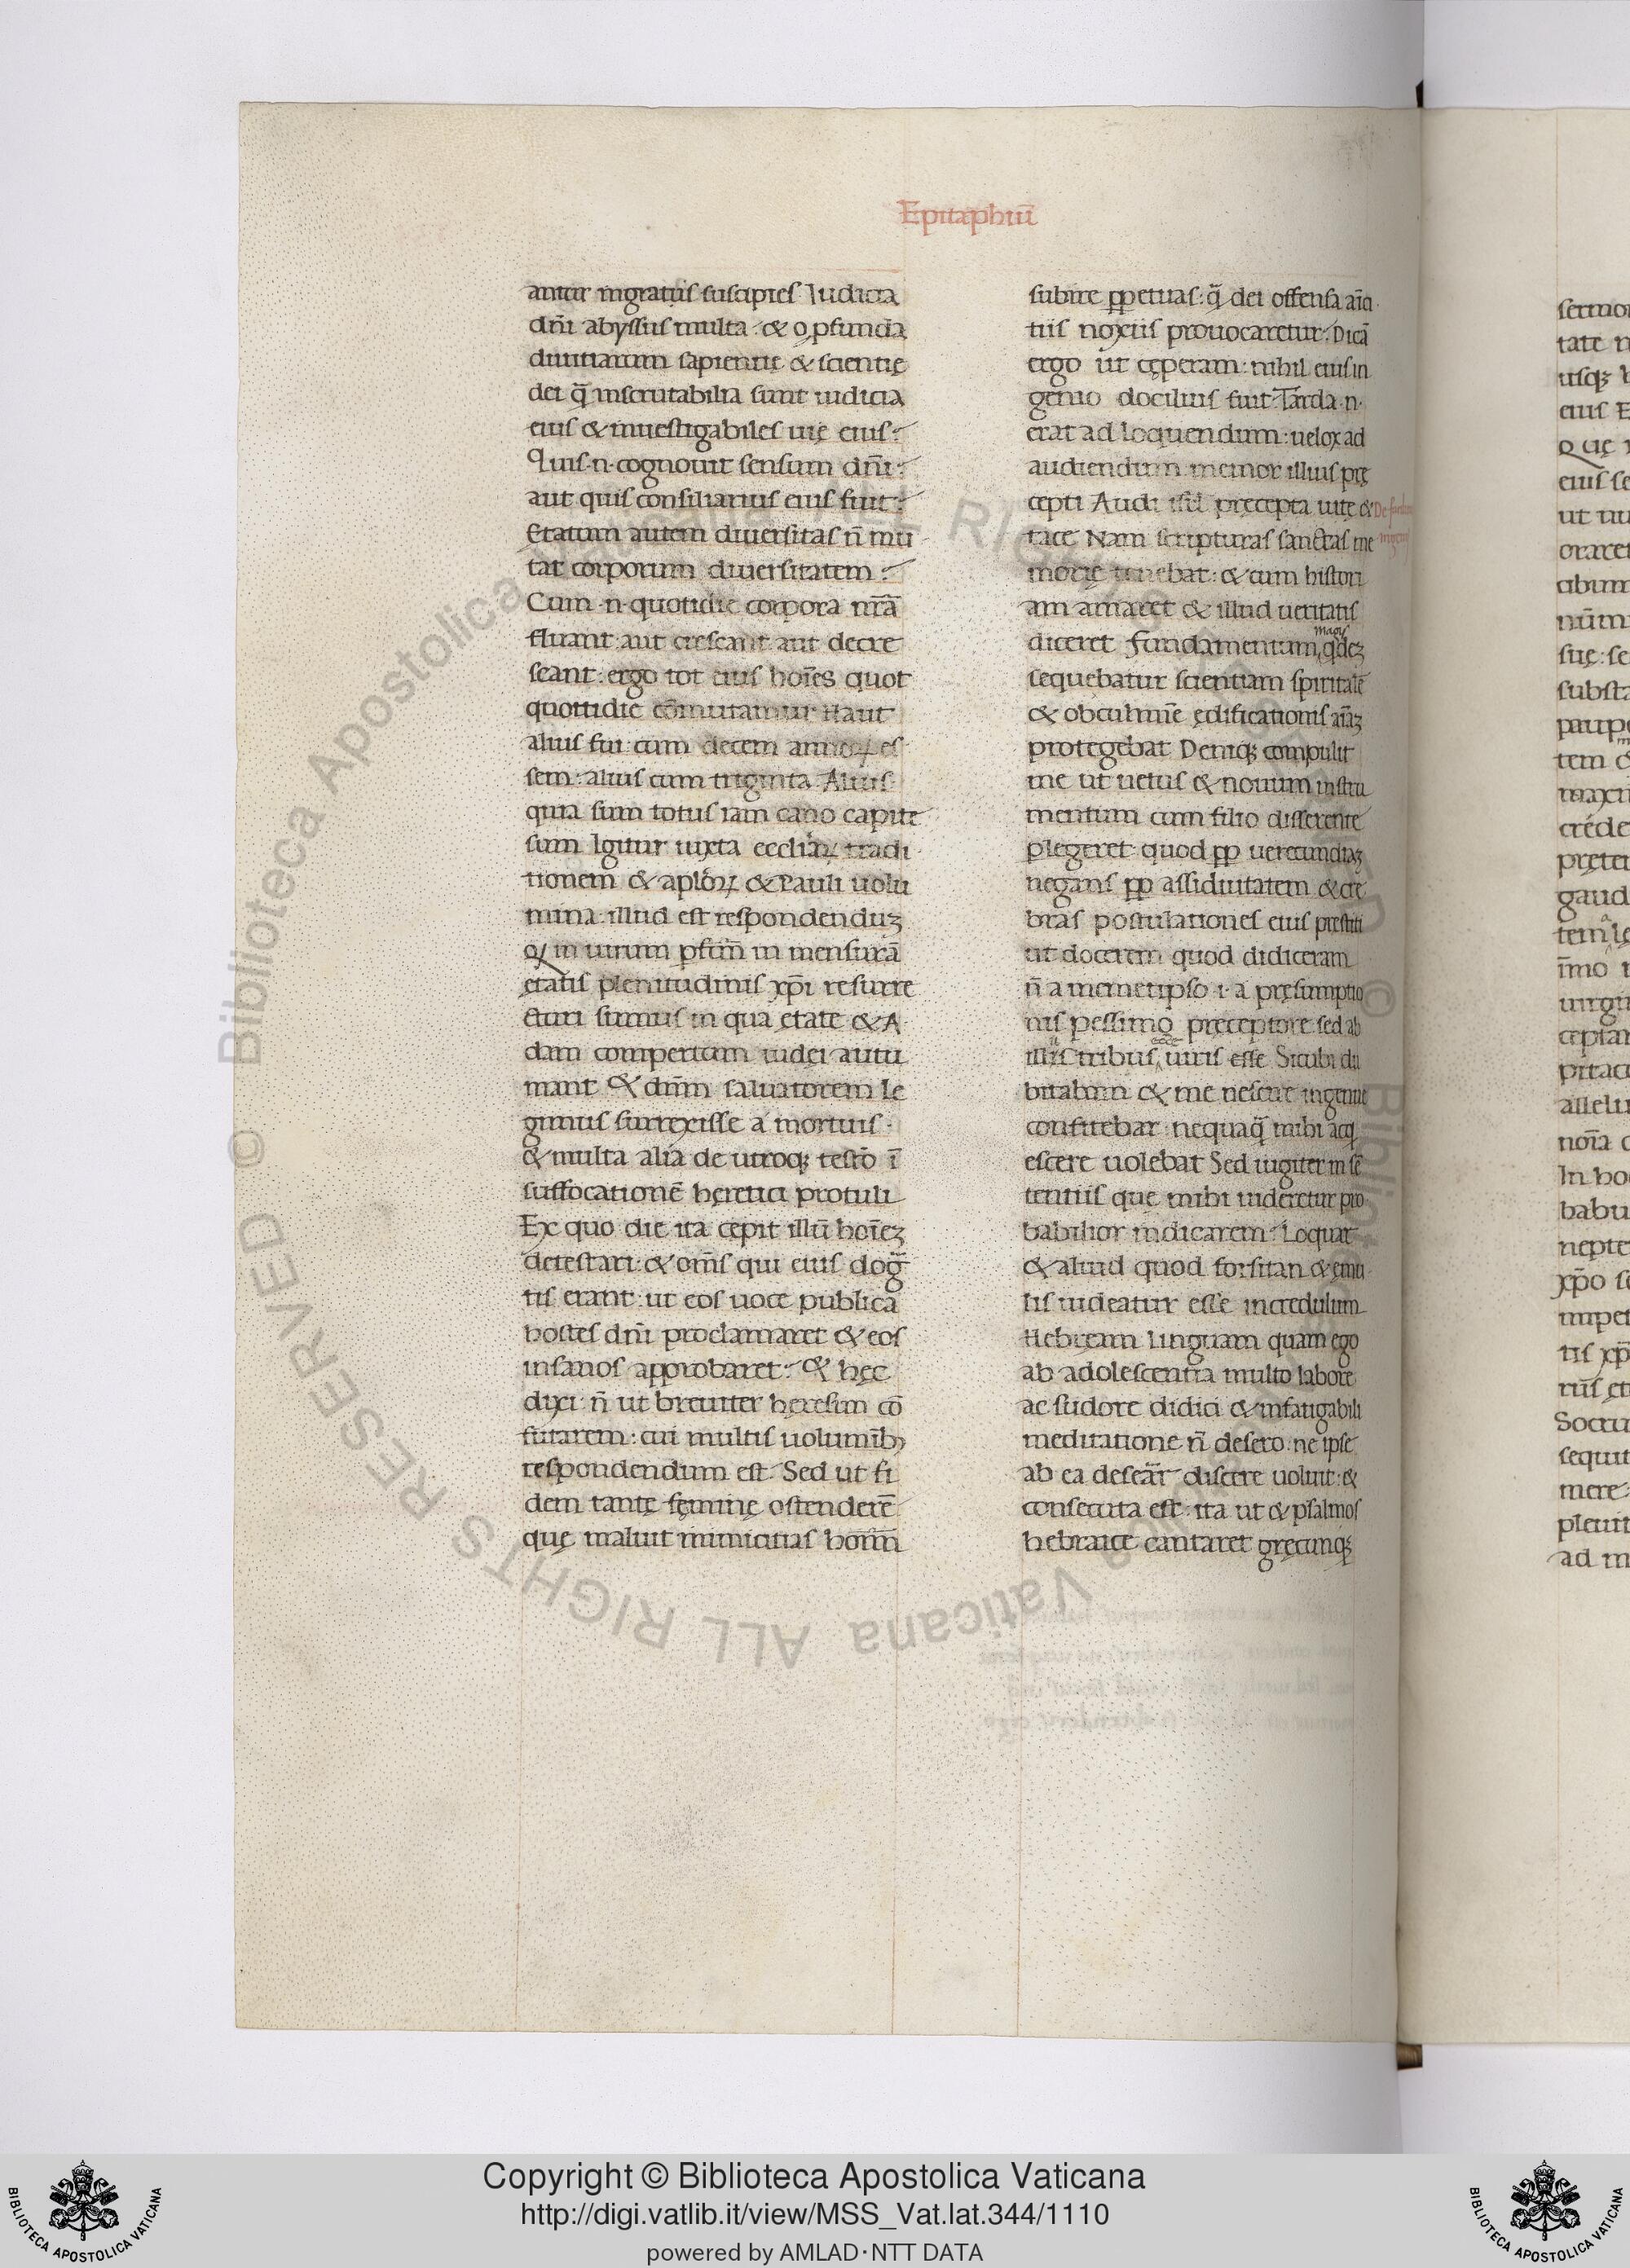 Epitaphiū
antur ingratus suscipies Iudicia
dn̄i abyssus multa: & o pfunda
diuitiarum sapientię & scientię
dei q̄ inscrutabilia sunt iudicia
eius & inuestigabiles uię eius:
Quis·n·cognouit sensum dn̄i:
aut quis consiliarius eius fuit:
Etatum autem diuersitas n̄ mu
tat corporum diuersitatem:
Cum·n·quotidie corpora nr̄a
fluant: aut crescant aut decre
scant: ergo tot eius hoīes quot
quottidie cōmutamur Haut
alius fui: cum decem annoꝝ es
sem: alius cum triginta Alius
quia sum totus iam cano capite
sum Igitur iuxta eccliāꝝ tradi
tionem & aplōꝝ & Pauli uolu
mina: illud est respondenduꝫ
qꝫ in uirum pfctm̄ in mensurā
ętatis plenitudinis xp̄i resurre
cturi sumus in qua ętate & A
dam compertum iudęi autu
mant & dnm̄ saluatorem le
gimus surrexisse a mortuis·
& multa alia de utroqꝫ testō ī
suffocationē hęretici protuli
Ex quo die ita cepit illū hoīeꝫ
detestari: & om̄s qui eius dog̃
tis erant: ut eos uoce publica
hostes dn̄i proclamaret & eos
insanos approbaret: & hęc
dixi: n̄ ut breuiter hęresim cō
futarem: cui multis uolumībꝫ
respondendum est. Sed ut fi
dem tantę fęminę ostenderē
quę maluit inimicitias homīm
subire ꝑpetuas: q̄ dei offensa aīci
tiis noxiis prouocaretur: Dicā
ergo ut cęperam: nihil eius in
genio docilius fuit: Tarda·n·
erat ad loquendum: uelox ad
audiendum memor illius prę
cepti Audi isrl̄ pręcepta uitę &
tace Nam scripturas sanctas me
morię tenebat: & cum histori
am amaret & illud ueritatis
diceret fundamentum, magis q̄deꝫ
sequebatur scientiam spiritalē
& ob culmīe ędificationis aīaꝫ
protegebat Deniqꝫ compulit
me ut uetus & nouum instru
mentum cum filio differente
plegeret quod ꝓp uerecundiaꝫ
negans ꝓp assiduitatem & cre
bras postulationes eius prestiti
ut docerem quod didiceram
n̄ a memetipso·i·a pręsumptio
nis pessimo pręceptore sed ab
illustribus, ecce uiris esse Sicubi du
bitabam & me nescire ingenue
confitebar: nequaq̄ mihi acq
escere uolebat Sed iugiter in sē
tentiis que mihi uideretur pro
babilior indicarem: Loquar
& aliud quod forsitan & ęmu
lis uideatur esse incredulum
Hebręam linguam quam ego
ab adolescentia multo labore
ac sudore didici & infatigabili
meditatione n̄ desero: ne ipse
ab ea deseār discere uoluit: &
consecuta est: ita ut & psalmos
hebraice cantaret gręcumqꝫ
Copyright © Biblioteca Apostolica Vaticana
http://digi.vatlib.it/view/MSS_Vat.lat.344/1110
powered by AMLAD·NTT DATA